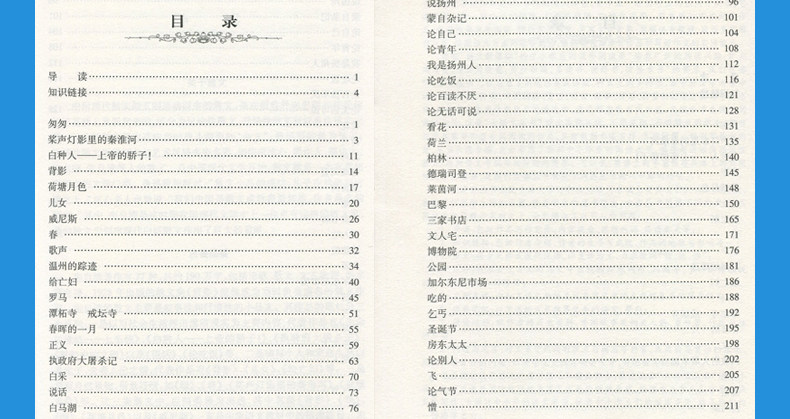 目 录
导 读 1
知识链接 4
匆匆 1
桨声灯影里的秦淮河 3
白种人——上帝的骄子！ 11
背影 14
荷塘月色 17
儿女 20
威尼斯 26
春 30
歌声 32
温州的踪迹 34
给亡妇 40
罗马 45
潭柘寺 戒坛寺 51
春晖的一月 55
正义 59
执政府大屠杀记 63
白采 70
说话 73
白马湖 76
说扬州 96
蒙自杂记 101
论自己 104
论青年 108
我是扬州人 112
论吃饭 116
论百读不厌 121
论无话可说 128
看花 131
荷兰 135
柏林 140
德瑞司登 145
莱茵河 148
巴黎 150
三家书店 165
文人宅 171
博物院 176
公园 181
加尔东尼市场 186
吃的 188
乞丐 192
圣诞节 195
房东太太 198
论别人 202
飞 205
论气节 207
憎 211